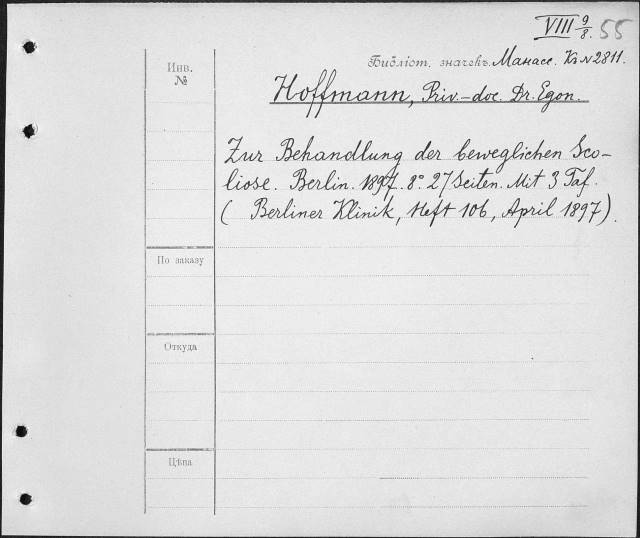 VIII 9/8. 55
Библіот. значекъ. Манасс. Кз N 2811.
Инв.
№
Hoffmann, Priv.-doc. Dr. Egon.
Zur Behandlung der beweglichen Sco-
liose. Berlin. 1897. 8° 27 Seiten. Mit 3 Taf.
( Berliner Klinik, Heft 106, April 1897).
По заказу
Откуда
Цѣна